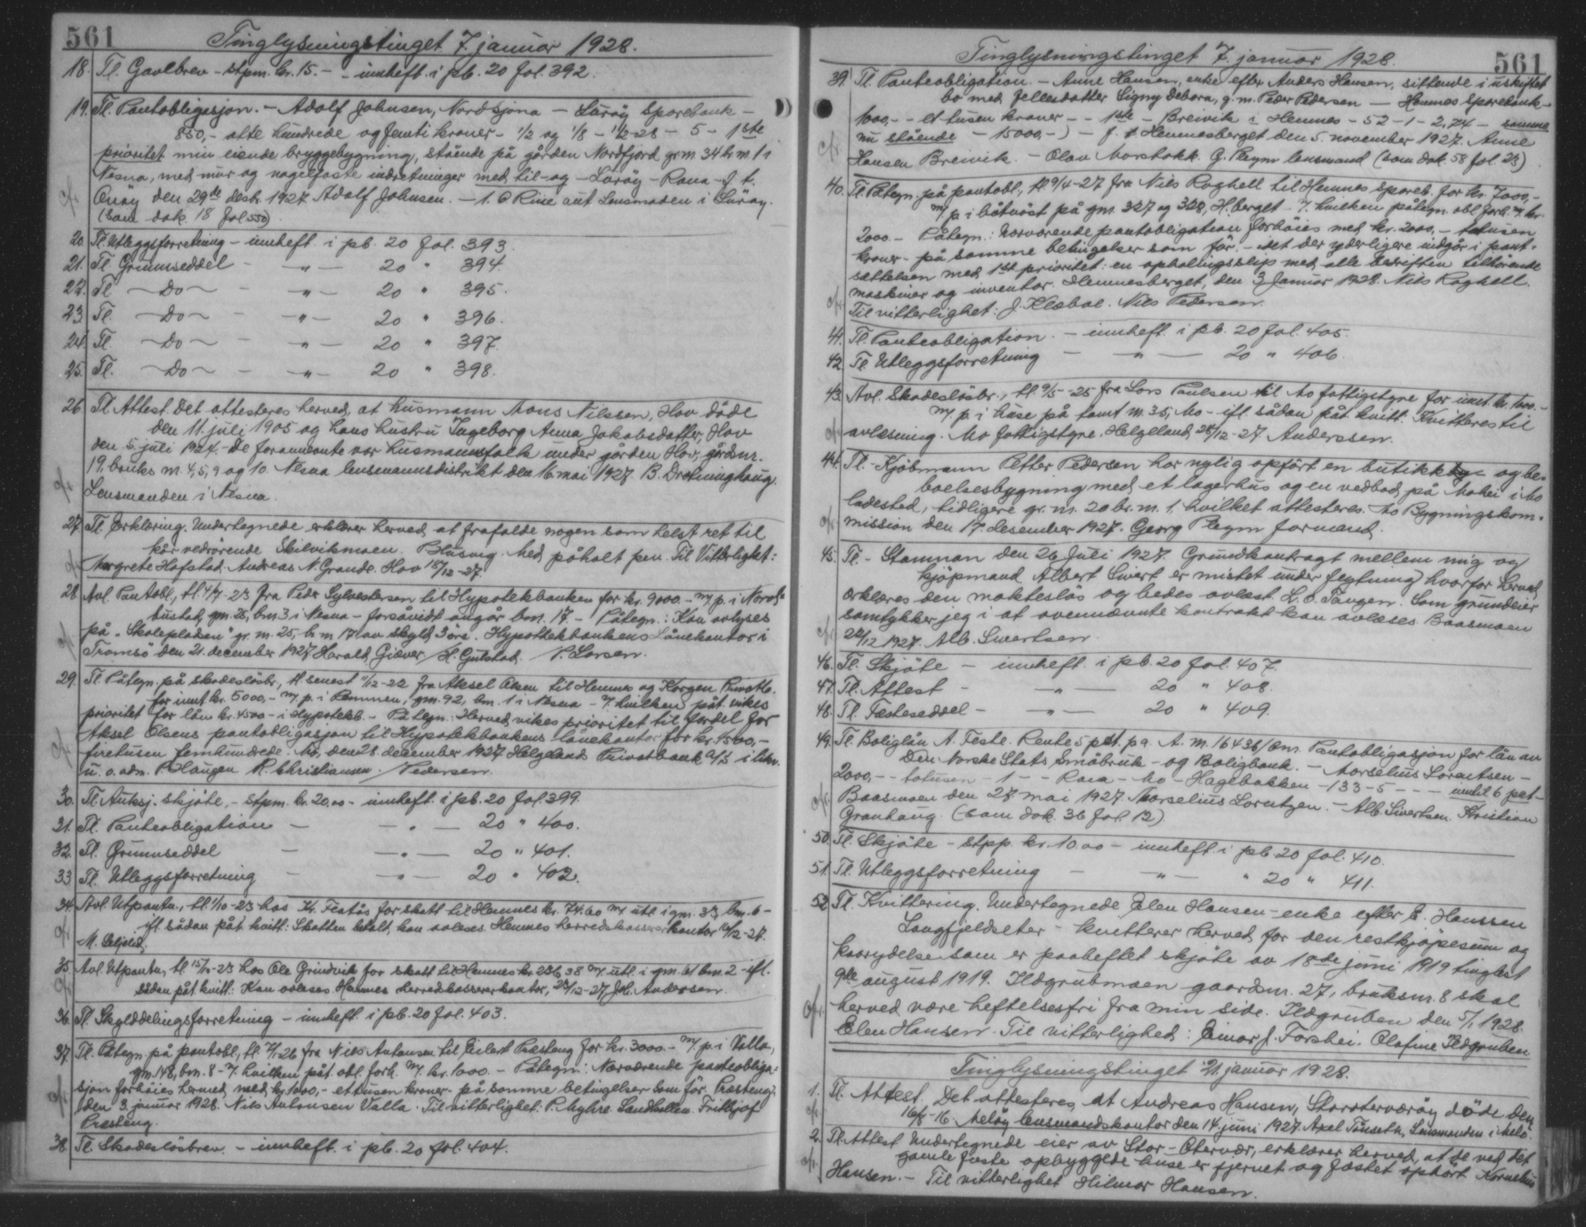 561
Tinglysningstinget 7. januar 1928.
18. Tl. Gavebrev - stpm. kr. 15.- - innheft. i pb. 20 fol. 392.
19. Tl. Pantobligasjon. - Adolf Johnsen, Nordsjona - Lurøy Sparebank -
850,- åtte hundrede og femti kroner - 1/2 og 1/8 - 1/2-28 - 5 - 1ste
prioritet min eiende bryggebygning, stående på gården Nordfjord gr.m 34 b.m 1 i
Nesna, med mur og nagelfaste indretninger med til- og - Lurøy - Rana - f. t.
Onøy den 29de desbr. 1927 Adolf Johnsen. - aut. Lensmaden i Lurøy.
(Sam. dok. 18 fol. 550)
20. Tl. Utleggsforretning - innheft. i pb. 20 fol. 393.
21. Tl. Grunnseddel - -"- 20 " 394.
22. Tl. -Do- - -"- 20 " 395.
23. Tl. -Do- - -"- 20 " 396.
24. Tl. -Do- - -"- 20 " 397.
25. Tl. -Do- - -"- 20 " 398.
26. Tl. Attest. Det attesteres herved, at husmann Mons Nilssen, Hov døde
den 11. juli 1905 og hans hustru Ingeborg Anna Jakobsdatter, Hov
den 5. juli 1924. De forannevnte var husmannsfolk under gården Hov, gårdsnr.
19, bruks nr. 4, 5, 9 og 10. Nesna lensmannsdistrikt den 16. mai 1927. B. Drotninghaug.
Lensmanden i Nesna.
27. Tl. Erklæring. Undertegnede erklærer herved, at frafalde nogen som helst ret til
kår vedrørende Skilvikmoen. med påholt pen. Til Vitterlighet:
Margrete Hafstad. Andreas N. Grande. Hov 15/12-27.
28. Avl. Pantobl., tl. 4/7-23 fra Peder Sylvestersen til Hypotekbanken for kr. 9000.- m/ p. i
gnr. 25, bnr. 3 i Nesna - forsåvidt angår bnr. 17. - Påtegn.: Kan avlyses
på "Skolepladsen" gr. nr. 25, b. nr. 17 av skyld 3 øre. Hypotekbankens Lånekontor i
Tromsø den 21. december 1927 Harald Giæver / H. Gulstad. P. Larsen.
29. Tl. Påtegn. på skadesløsbr., tl. senest 4/12-22 fra Aksel Olsen til Hemnes og Korgen Privatb.
for inntil kr. 5000.- m/ p. i gnr. 92, bnr. 1 i Nesna - v. hvilken påt. vikes
prioritet for lån kr. 4500 - i Hypotekb. - Påtegn. Herved vikes prioritet til fordel for
Aksel Olsens pantobligasjon til Hypotekbankens lånekontor for kr. 4500,-
firetusen femhundrede. Mo, den 28 december 1927 Helgeland Privatbank A/S i likv.
u. o. adm. P. Haugen R. Christiansen Pedersen.
30. Tl. Auksj. skjøte, - stpm. kr. 20,00 - innheft. i pb. 20 fol. 399.
31. Tl. Panteobligation - -"- 20 " 400.
32. Tl. Grunnseddel - -"- 20 " 401.
33. Tl. Utleggsforretning - -"- 20 " 402.
34. Avl. Utpantn., tl. 4/10-23 hos for skatt til Hemnes kr. 74.60 m/ utl. i gnr. 33 bnr. 6 -
ifl. sådan påt. kvitt: Skatten betalt, kan avleses Hemnes herredskassererkontor
35. Avl. Utpantn., tl. 15/ -23 hos Ole Grindvik for skatt til Hemnes kr. m/ utl. i gnr. 61 bnr. 2 - ifl.
sådan påt. kvitt: Kan avleses Hemnes herredskassererkontor, 28/12-27. Andersen.
36. Tl. Skylddelingsforretning - innheft. i pb. 20 fol. 403.
37. Tl. Påtegn. på pantobl., tl. fra Nils Antonsen til Eilert Præsteng for kr. 3000.- m/ p. i Valla,
gnr. 148, bnr. 8 - v. hvilken påt. obl. forh. m/ kr. 1000. - Påtegn: Nærværende panteobliga-
sjon forhøies herved, med kr. 1000,- ettusen kroner - på samme betingelser som før. Præsteng
den 3. januar 1928. Nils Antonsen Valla. Til vitterlighet: P. Myhre Sandhallen. Fritthjof
Præsteng.
38. Tl. Skadesløsbrev. - innheft. i pb. 20 fol. 404.
Tinglysningstinget 7. januar 1928.
561
39. Tl. Panteobligation. - Anne Hansen, enke efter Anders Hansen, sittende i uskiftet
bo med fellesdatter Signy Debora, g. m. Peder Pedersen - Hemnes Sparebank -
1000,- - et tusen kroner - - 1ste - Breivik i Hemnes - 52 - 1 - 2,74 - samme
nu stående - 15000,-) - f. t. Hemnesberget den 5. november 1927. Anne
Hansen Breivik. - Olav Morstokk. G. Regm lensmand (Sam. dok. 58 fol. 23)
40. Tl. Påtegn. på pantobl., tl. 9/4-27 fra Nils Roghell til Hemnes Spareb. for kr. 7000,-
m/ p. i båtnøst på gnr. 327 og 328, H.berget. - v. hvilken påtegn. obl. forh. m/ kr.
2000.- Påtegn.: Nærværende pantobligation forhøies med kr. 2000.- totusen
kroner - på samme betingelser som før. - det der yderligere indgår i pant-
settelsen med 1st prioritet: en ophalingsslip med alle bedriften tilhørende
maskiner og inventar. Hemnesberget, den 3 Januar 1928. Nils Roghell.
Til vitterlighet: J. Klæboe. Nils Pedersen.
41. Tl. Panteobligation. - innheft. i pb. 20 fol. 405.
42. Tl. Utleggsforretning - -"- 20 " 406.
43. Avl. Skadesløsbr., tl. 9/5-25 fra Lars Paulsen til Mo fattigstyre for inntil kr. 1000.-
m/ p. i huse på tomt nr. 35, Mo - ifl. sådan påt. kvitt. Kvitteres til
avlæsning. Mo fattigstyre. Helgeland, 28/12-27 Anderssen.
44. Tl. - Kjøbmann Petter Pedersen har nylig opført en butikk og be-
boelsesbygning med et lagerhus og en vedbod på Mohei i Mo
ladested, tidligere gr. nr. 20 br. nr. 1, hvilket attesteres. Mo Bygningskom-
mission den 17. desember 1927. Georg Regm formand.
45. Tl. - Stamnan den 26. Juli 1927. Grundkontragt mellem mig og
kjøpmand Albert Sivert er mistet under flytning hvorfor herved
erklæres den maktesløs og bedes avlæst L. O. Tangen. Som grundeier
samtykker jeg i at ovennævnte kontrakt kan avlæses Baasmoen
22/12 1927. Alb. Sivertsen.
46. Tl. Skjøte - innheft. i pb. 20 fol. 407.
47. Tl. Attest - -"- 20 " 408.
48. Tl. Festeseddel - -"- 20 " 409.
49. Tl. Boliglån A. Feste. Rente 5 pct. p.a. A. nr. 16436/ . Pantobligasjon for lån av
Den Norske Stats Småbruk- og Boligbank. - Marselius Lorentsen -
2000,- - totusen - 1 - - Rana - Mo - Hagebakken - 133 - 5 - - - inntil 6 pct -
Baasmoen den 28 mai 1927. Marselius Lorentzen. - Alb. Sivertsen. Kristian
Granhaug. (Sam dok. 36 fol. 12)
50. Tl. Skjøte - stpp. kr. 10.00 - innheft. i pb. 20 fol. 410.
51. Tl. Utleggsforretning - -"- " 20 " 411.
52. Tl. Kvittering. Undertegnede Elen Hansen - enke efter E. Hanssen
Langfjeldseter - kvitterer herved for den restkjøpesum og
kaarydelse som er paaheftet skjøte av 18de juni 1919 tinglæst
9de august 1919. Ildgrubmoen gaardsnr. 27, bruksnr. 8 skal
herved være heftelsesfri fra min side. Ildgruben den 5/1 1928.
Elen Hansen. Til vitterlighed: Einar J. Forsbei. Olefine Ildgruben.
Tinglysningstinget 21 januar 1928.
1. Tl. Attest. Det attesteres, at Andreas Hansen, Storoterværøy døde den
16/6-16. Meløy lensmandskontor den 14 juni 1927. Axel Tønseth, Lensmanden i Melø.
2. Tl. Attest. Undertegnede eier av Stor-Oterværøy, erklærer herved, at de ved det
gamle feste opbyggede huse er fjernet og festet ophørt Kornelius
Hansen. - Til vitterlighet Hilmar Hansen.